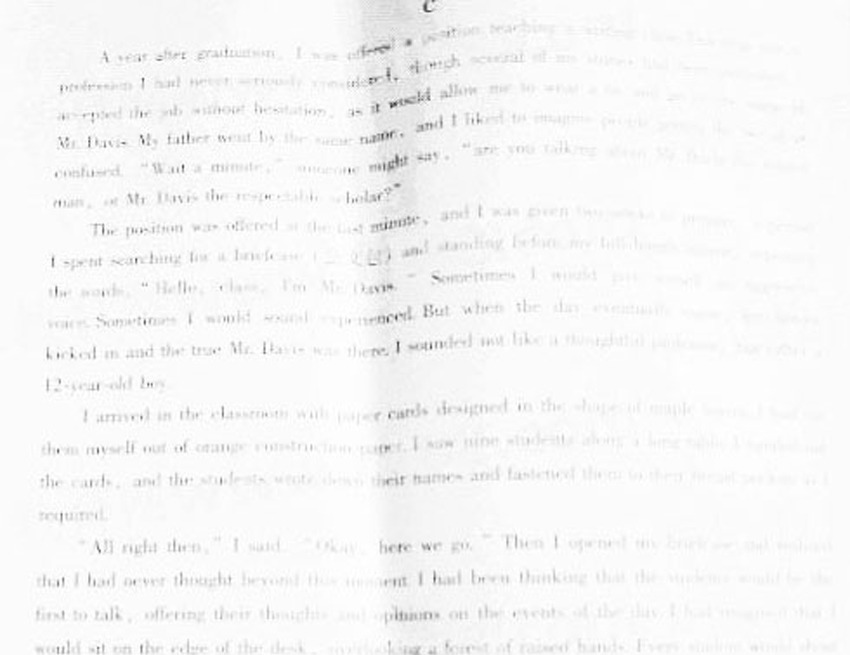 C
A year after graduation, I was offered a position teaching a writing class. Teaching was a
profession I had never seriously considered, though several of my stories had been published. I
accepted the job without hesitation, as it would allow me to wear a tie and go by the name of
Mr. Davis. My father went by the same name, and I liked to imagine people getting the two of us
confused. "Wait a minute," someone might say, "are you talking about Mr. Davis the
man, or Mr. Davis the respectable scholar?"
The position was offered at the last minute, and I was given two weeks to prepare,
I spent searching for a briefcase ( ) and standing before my full-length mirror, repeating
the words, "Hello, class, I'm Mr. Davis." Sometimes I would give myself an aggressive
voice. Sometimes I would sound experienced. But when the day eventually came, my nerves
kicked in and the true Mr. Davis was there. I sounded not like a thoughtful professor, but rather a
12-year-old boy.
I arrived in the classroom with paper cards designed in the shape of maple leaves. I had cut
them myself out of orange construction paper. I saw nine students along a long table. I handed out
the cards, and the students wrote down their names and fastened them to their breast pockets as I
required.
"All right then," I said. "Okay, here we go." Then I opened my briefcase and realized
that I had never thought beyond this moment. I had been thinking that the students would be the
first to talk, offering their thoughts and opinions on the events of the day. I had imagined that I
would sit on the edge of the desk, overlooking a forest of raised hands. Every student would shout